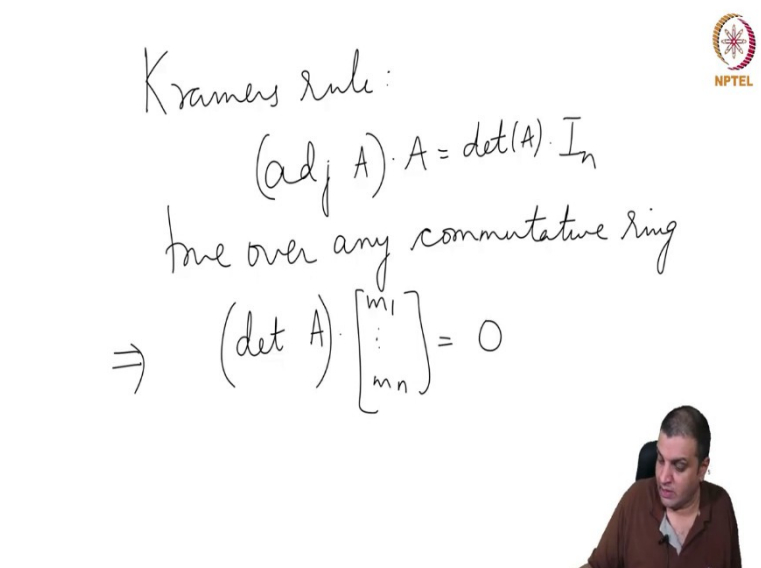 NPTEL
Kramers rule:
(adj A) · A = det(A) · Iₙ
true over any commutative ring
⇒ (det A) · [m₁ ⋮ mₙ] = 0